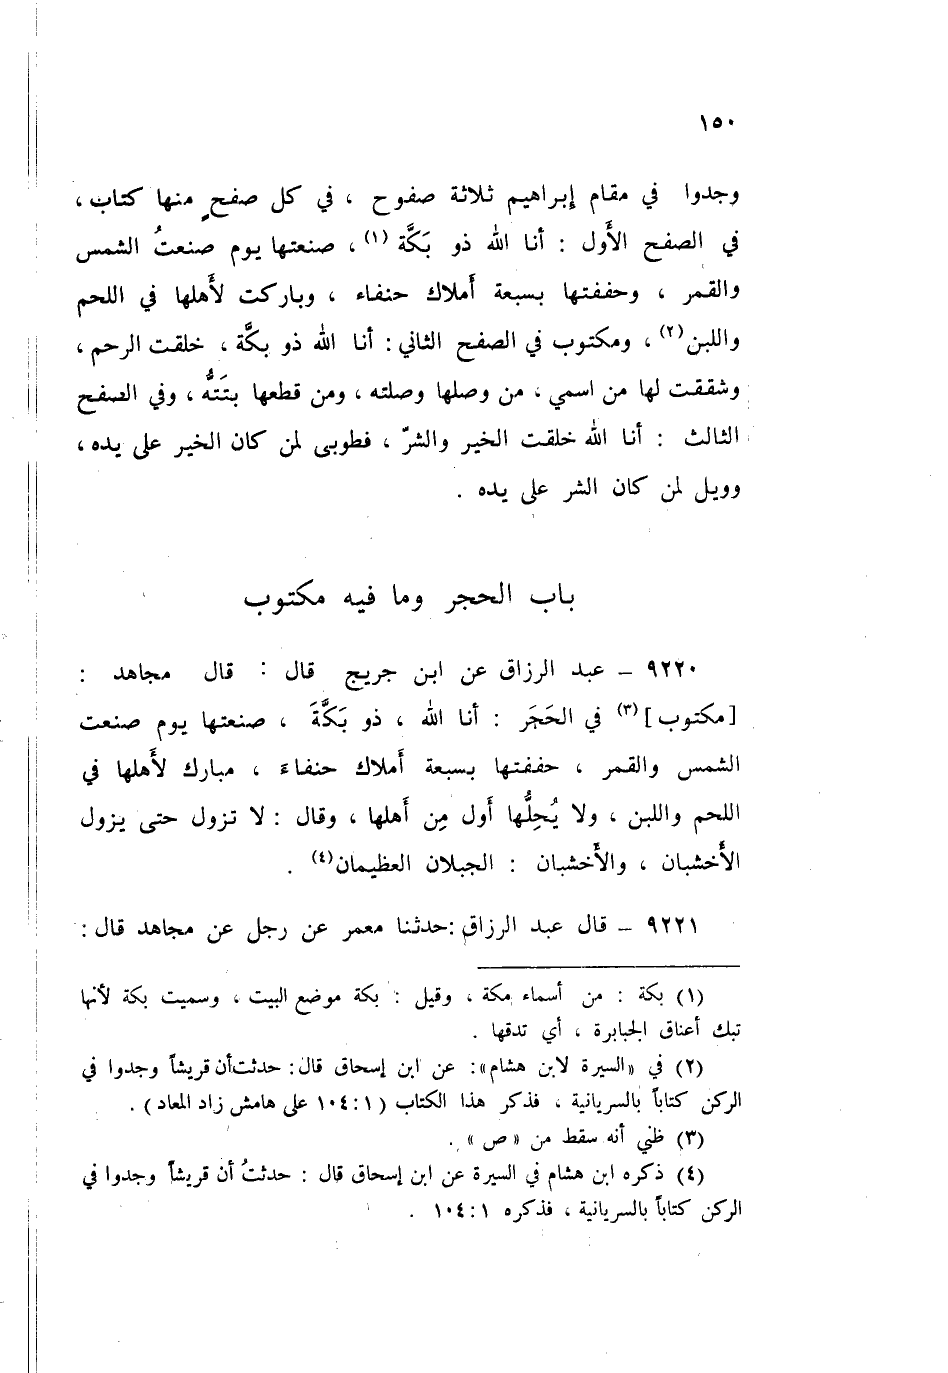 ١٥٠
وجدوا في مقام إبراهيم ثلاثة صفوح ، في كل صفحٍ منها كتاب ،
في الصفح الأَول : أنا الله ذو بَكَّة (١) ، صنعتها يوم صنعتُ الشمس
والقمر ، وحففتها بسبعة أَملاك حنفاء ، وباركت لأَهلها في اللحم
واللبن (٢) ، ومكتوب في الصفح الثاني : أنا الله ذو بكَّة ، خلقت الرحم ،
وشققت لها من اسمي ، من وصلها وصلته ، ومن قطعها بتَتُّه ، وفي الصفح
الثالث : أنا الله خلقت الخير والشرّ ، فطوبى لمن كان الخير على يده ،
وويل لمن كان الشر على يده .
باب الحجر وما فيه مكتوب
٩٢٢٠ – عبد الرزاق عن ابن جريج قال : قال مجاهد :
[مكتوب] (٣) في الحَجَر : أنا الله ، ذو بَكَّةَ ، صنعتها يوم صنعت
الشمس والقمر ، حففتها بسبعة أَملاك حنفاءَ ، مبارك لأَهلها في
اللحم واللبن ، ولا يُحِلُّها أَول مِن أَهلها ، وقال : لا تزول حتى يزول
الأَخشبان ، والأَخشبان : الجبلان العظيمان (٤) .
٩٢٢١ – قال عبد الرزاق : حدثنا معمر عن رجل عن مجاهد قال :
(١) بكة : من أسماء مكة ، وقيل : بكة موضع البيت ، وسميت بكة لأنها
تبك أعناق الجبابرة ، أي تدقها .
(٢) في «السيرة لابن هشام» : عن ابن إسحاق قال : حدثت أن قريشاً وجدوا في
الركن كتاباً بالسريانية ، فذكر هذا الكتاب (١ : ١٠٤ على هامش زاد المعاد) .
(٣) ظني أنه سقط من «ص» .
(٤) ذكره ابن هشام في السيرة عن ابن إسحاق قال : حدثتُ أن قريشاً وجدوا في
الركن كتاباً بالسريانية ، فذكره ١ : ١٠٤ .